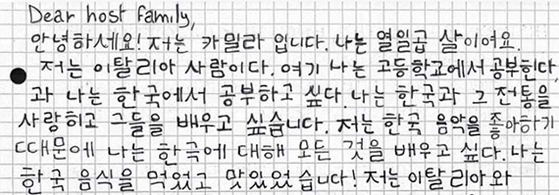 Dear host family,
안녕하세요! 저는 카밀라 입니다. 나는 열일곱 살이어요.
저는 이탈리아 사람이다. 여기 나는 고등학교에서 공부한다,
과 나는 한국에서 공부하고 싶다. 나는 한국과 그 전통을
사랑히고 그들을 배우고 싶습니다. 저는 한국 음악을 좋아하기
때문에 나는 한국에 대해 모든 것을 배우고 싶다. 나는
한국 음식을 먹었고 맛있었 습니다! 저는 이탈리아와